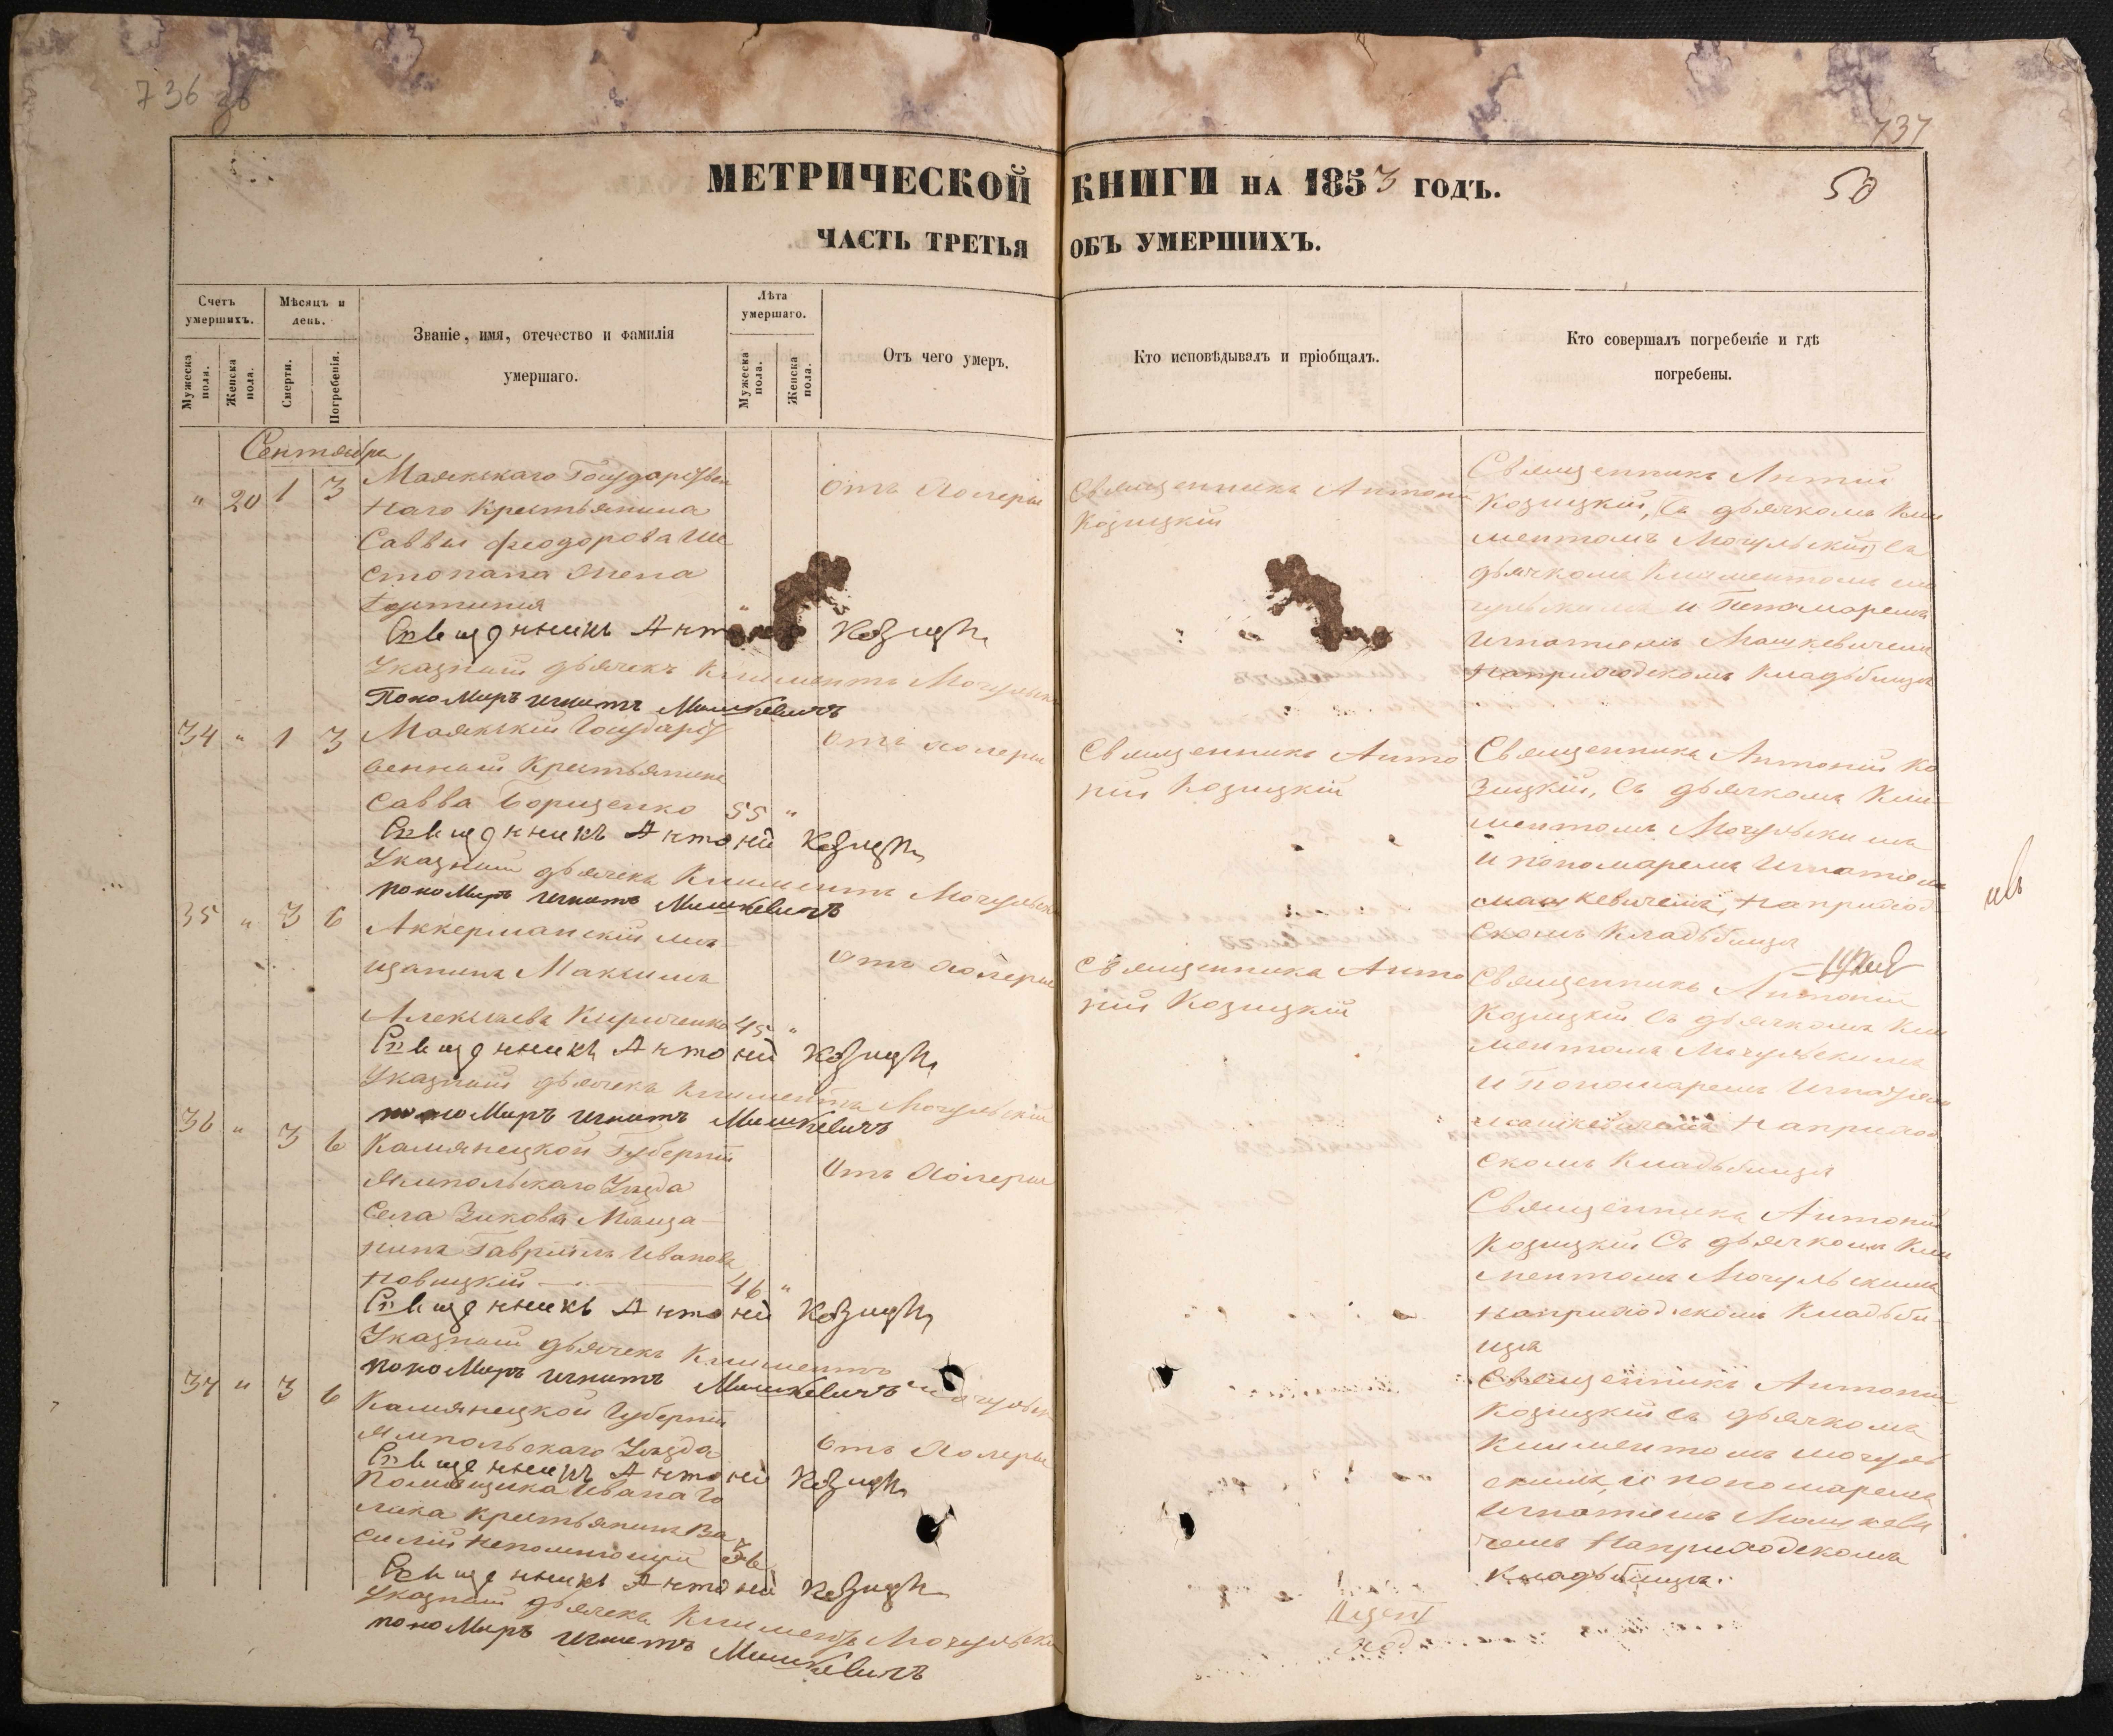 736 зв
737
МЕТРИЧЕСКОЙ КНИГИ НА 1853 ГОДЪ.
50
ЧАСТЬ ТРЕТЬЯ ОБЪ УМЕРШИХЪ.
Счетъ умершихъ.
Мужеска пола.
Женска пола.
Мѣсяцъ и день.
Смерти.
Погребенія.
Званіе, имя, отечество и фамилія
умершаго.
Лѣта умершаго.
Мужеска пола.
Женска пола.
Отъ чего умеръ.
Кто исповѣдывалъ и пріобщалъ.
Кто совершалъ погребеніе и гдѣ
погребены.
Сентября
" 20 1 3
Маякскаго Государствен
наго Крестьянина
Саввы Феодорова
жена
Отъ холеры
Священникъ Антоній
Козицкій
Священникъ Антній
Козицкій, Съ дьячкомъ Кли
ментомъ Мочульскимъ Съ
дьячкомъ Климентомъ мо
чульскимъ и Пономаремъ
Игнатіемъ Машкевичемъ
На приходскомъ Кладбищѣ
Священникъ Антоній Козицкій
Указный дьячекъ Климентъ Мочульскій
Пономаръ Игнатъ Машкевичъ
34 " 1 3
Маякскій Государст
венный Крестьянинъ
Савва Борщенко 55 "
Отъ холеры
Священникъ Анто
ній Козицкій
Священникъ Антоній Ко
зицкій, Съ дьячкомъ Кли
ментомъ Мочульскимъ
и пономаремъ Игнатіемъ
машкевичемъ, На приход
скомъ Кладбищѣ
Священникъ Антоній Козицкій
Указный дьячекъ Климентъ Мочульскій
пономаръ Игнатъ Машкевичъ
35 " 3 6
Аккерманскій мѣ
щанинъ Максимъ
Алексѣевъ Кириченко 45 "
Отъ холеры
Священникъ Анто
ній Козицкій
Священникъ Антоній
Козицкій Съ дьячкомъ Кли
ментомъ Мочульскимъ
и Пономаремъ Игнатіемъ
машкевичемъ На приход
скомъ Кладбищѣ
Священникъ Антоній Козицкій
Указный дьячекъ Климентъ Мочульскій
пономаръ Игнатъ Машкевичъ
36 " 3 6
Камянецкой Губерніи
Ямпольскаго Уѣзда
Села Зикова Мѣща
нинъ Гавріилъ Ивановъ
Новицкій 46 "
Отъ холеры
Священникъ Антоній
Козицкій Съ дьячкомъ Кли
ментомъ Мочульскимъ
На приходскомъ Кладби
щѣ
Священникъ Антоній Козицкій
Указный дьячекъ Климентъ Мочульскій
пономаръ Игнатъ Машкевичъ
37 " 3 6
Камянецкой Губерніи
Ямпольскаго Уѣзда
Священникъ Антоній Козицкій
Помѣщика Ивана Го
лика Крестьянинъ Ва
силій Непомнющій 56
Отъ холеры
Священникъ Антоній
Козицкій Съ дьячкомъ
Климентомъ мочуль
скимъ, и пономаремъ
Игнатіемъ Машкеви
чемъ На приходскомъ
Кладбищѣ.
Священникъ Антоній Козицкій
Указный дьячекъ Климентъ Мочульскій
пономаръ Игнатъ Машкевичъ